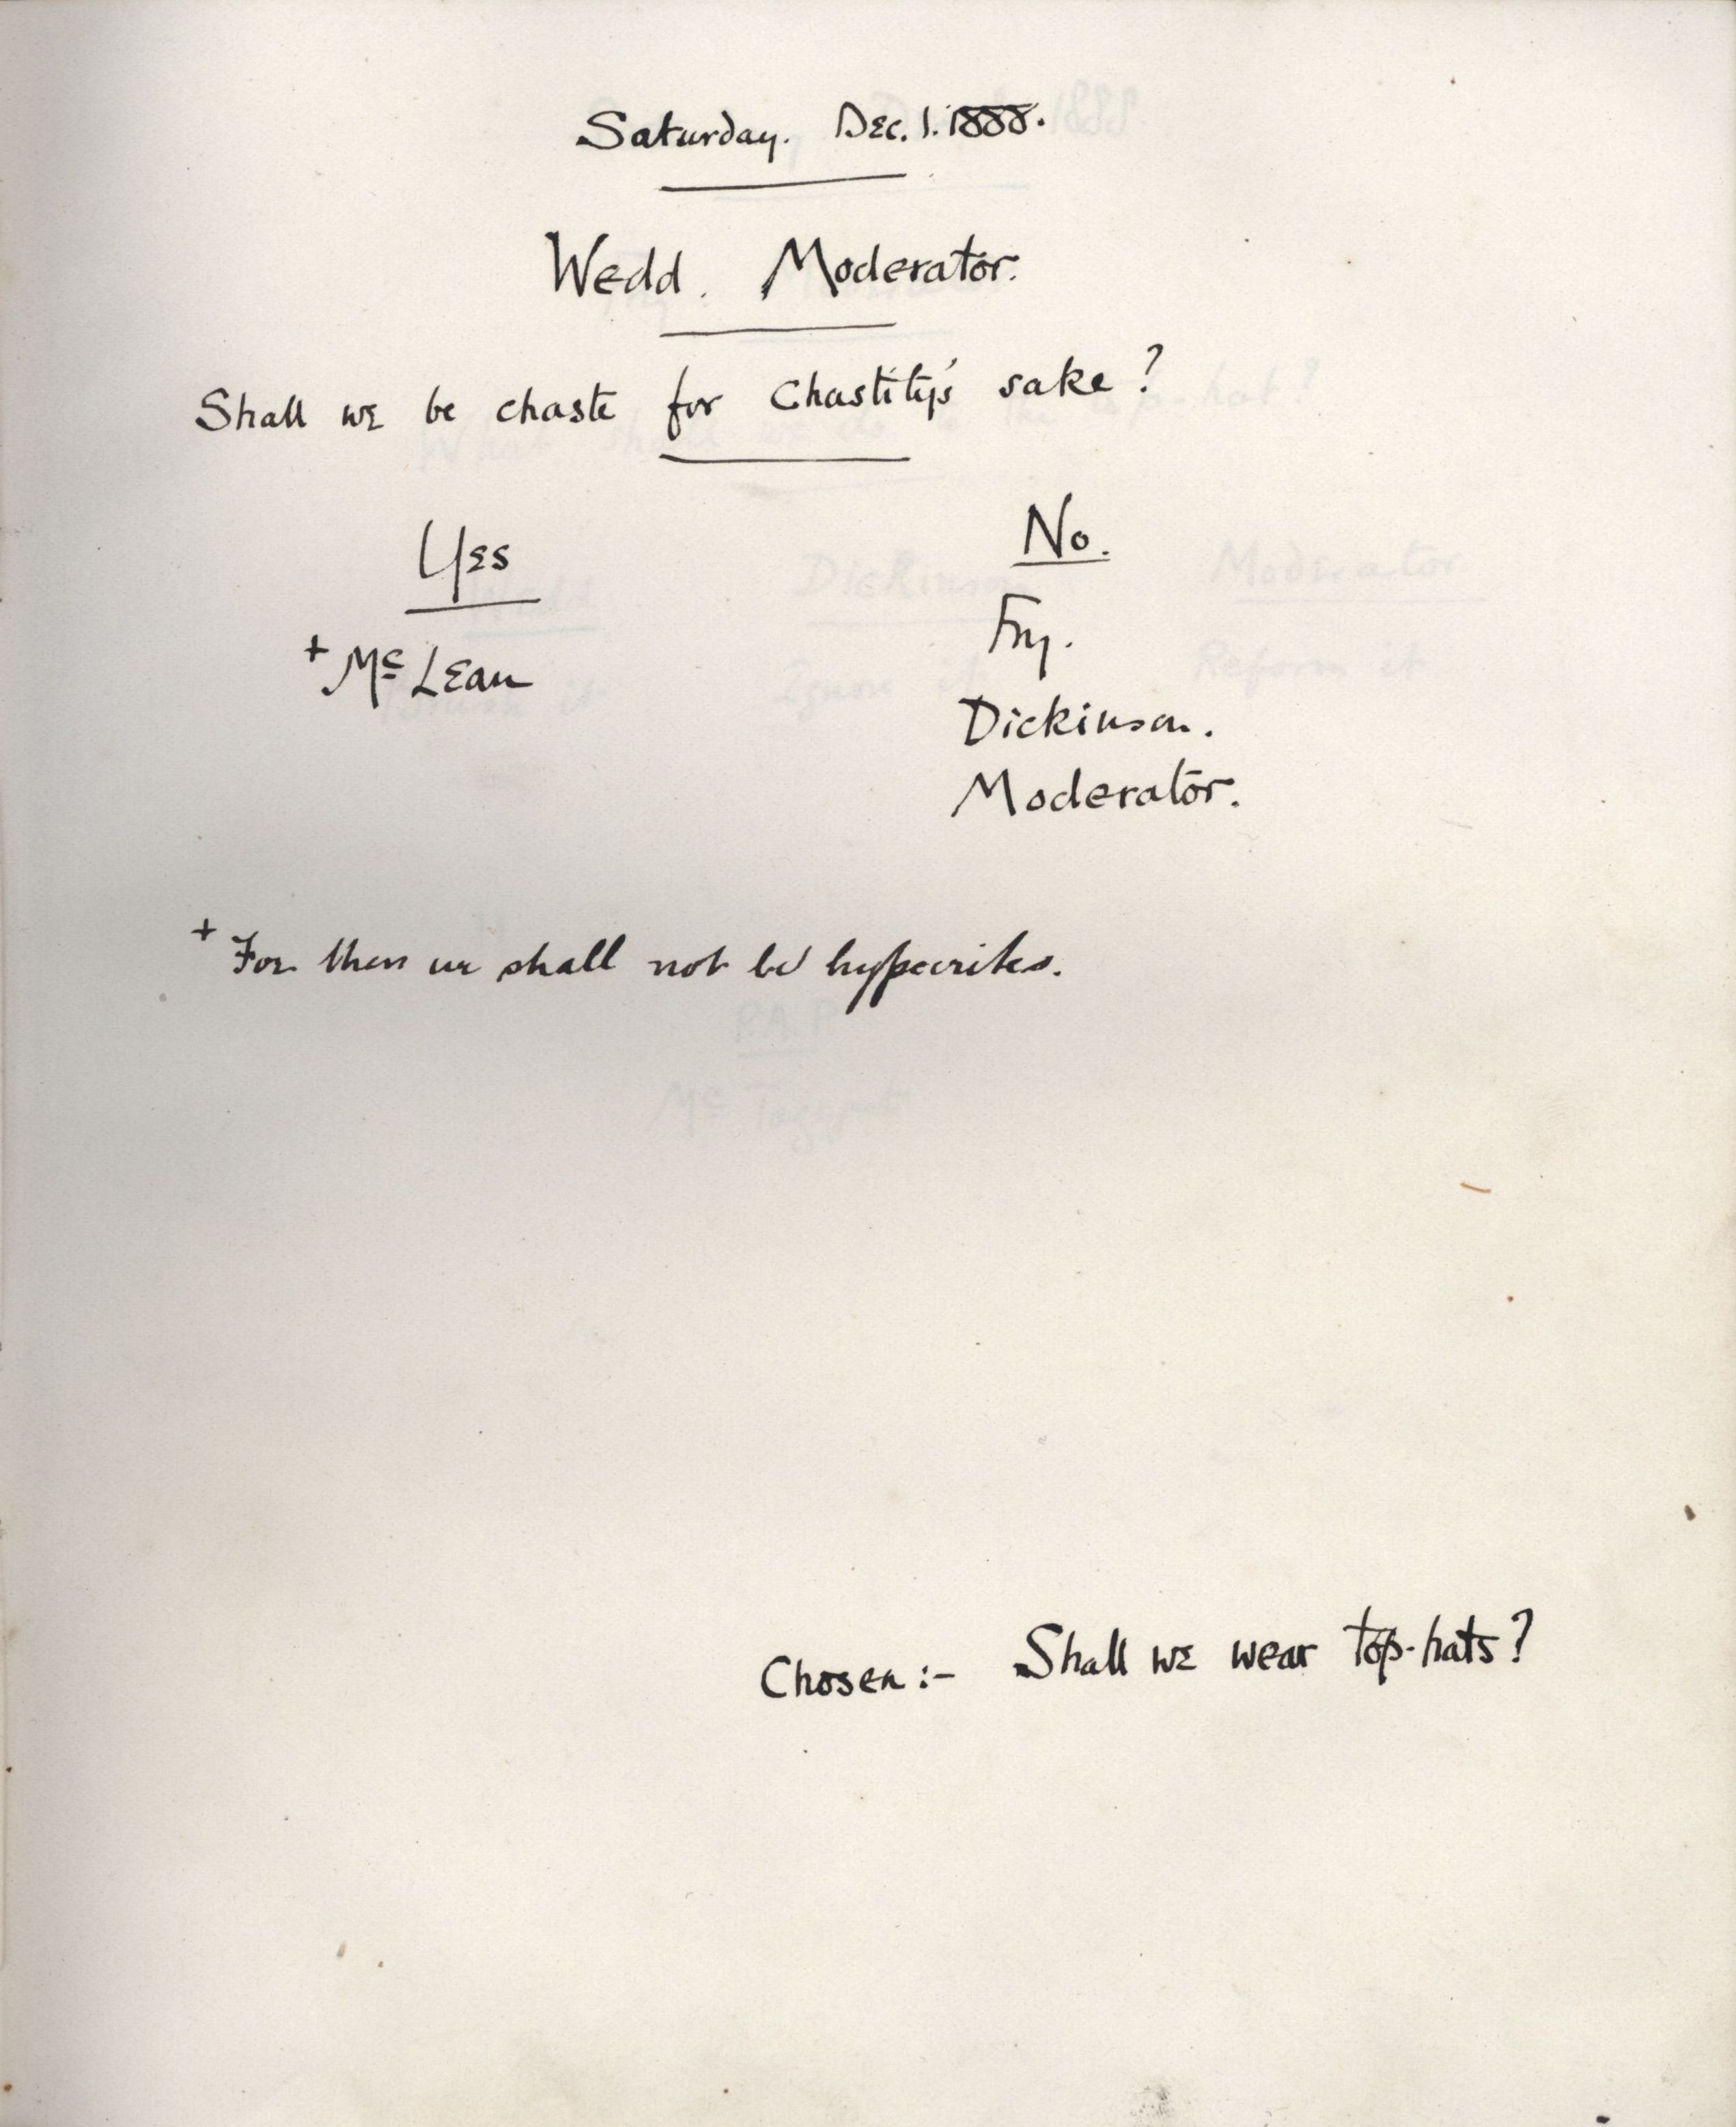 Saturday. Dec. 1. 1888.
Wedd. Moderator.
Shall we be chaste for Chastity's sake?
Yes
No.
+ Mc Lean
Fry.
Dickinson.
Moderator.
+ For then we shall not be hypocrites.
Chosen:- Shall we wear top-hats?